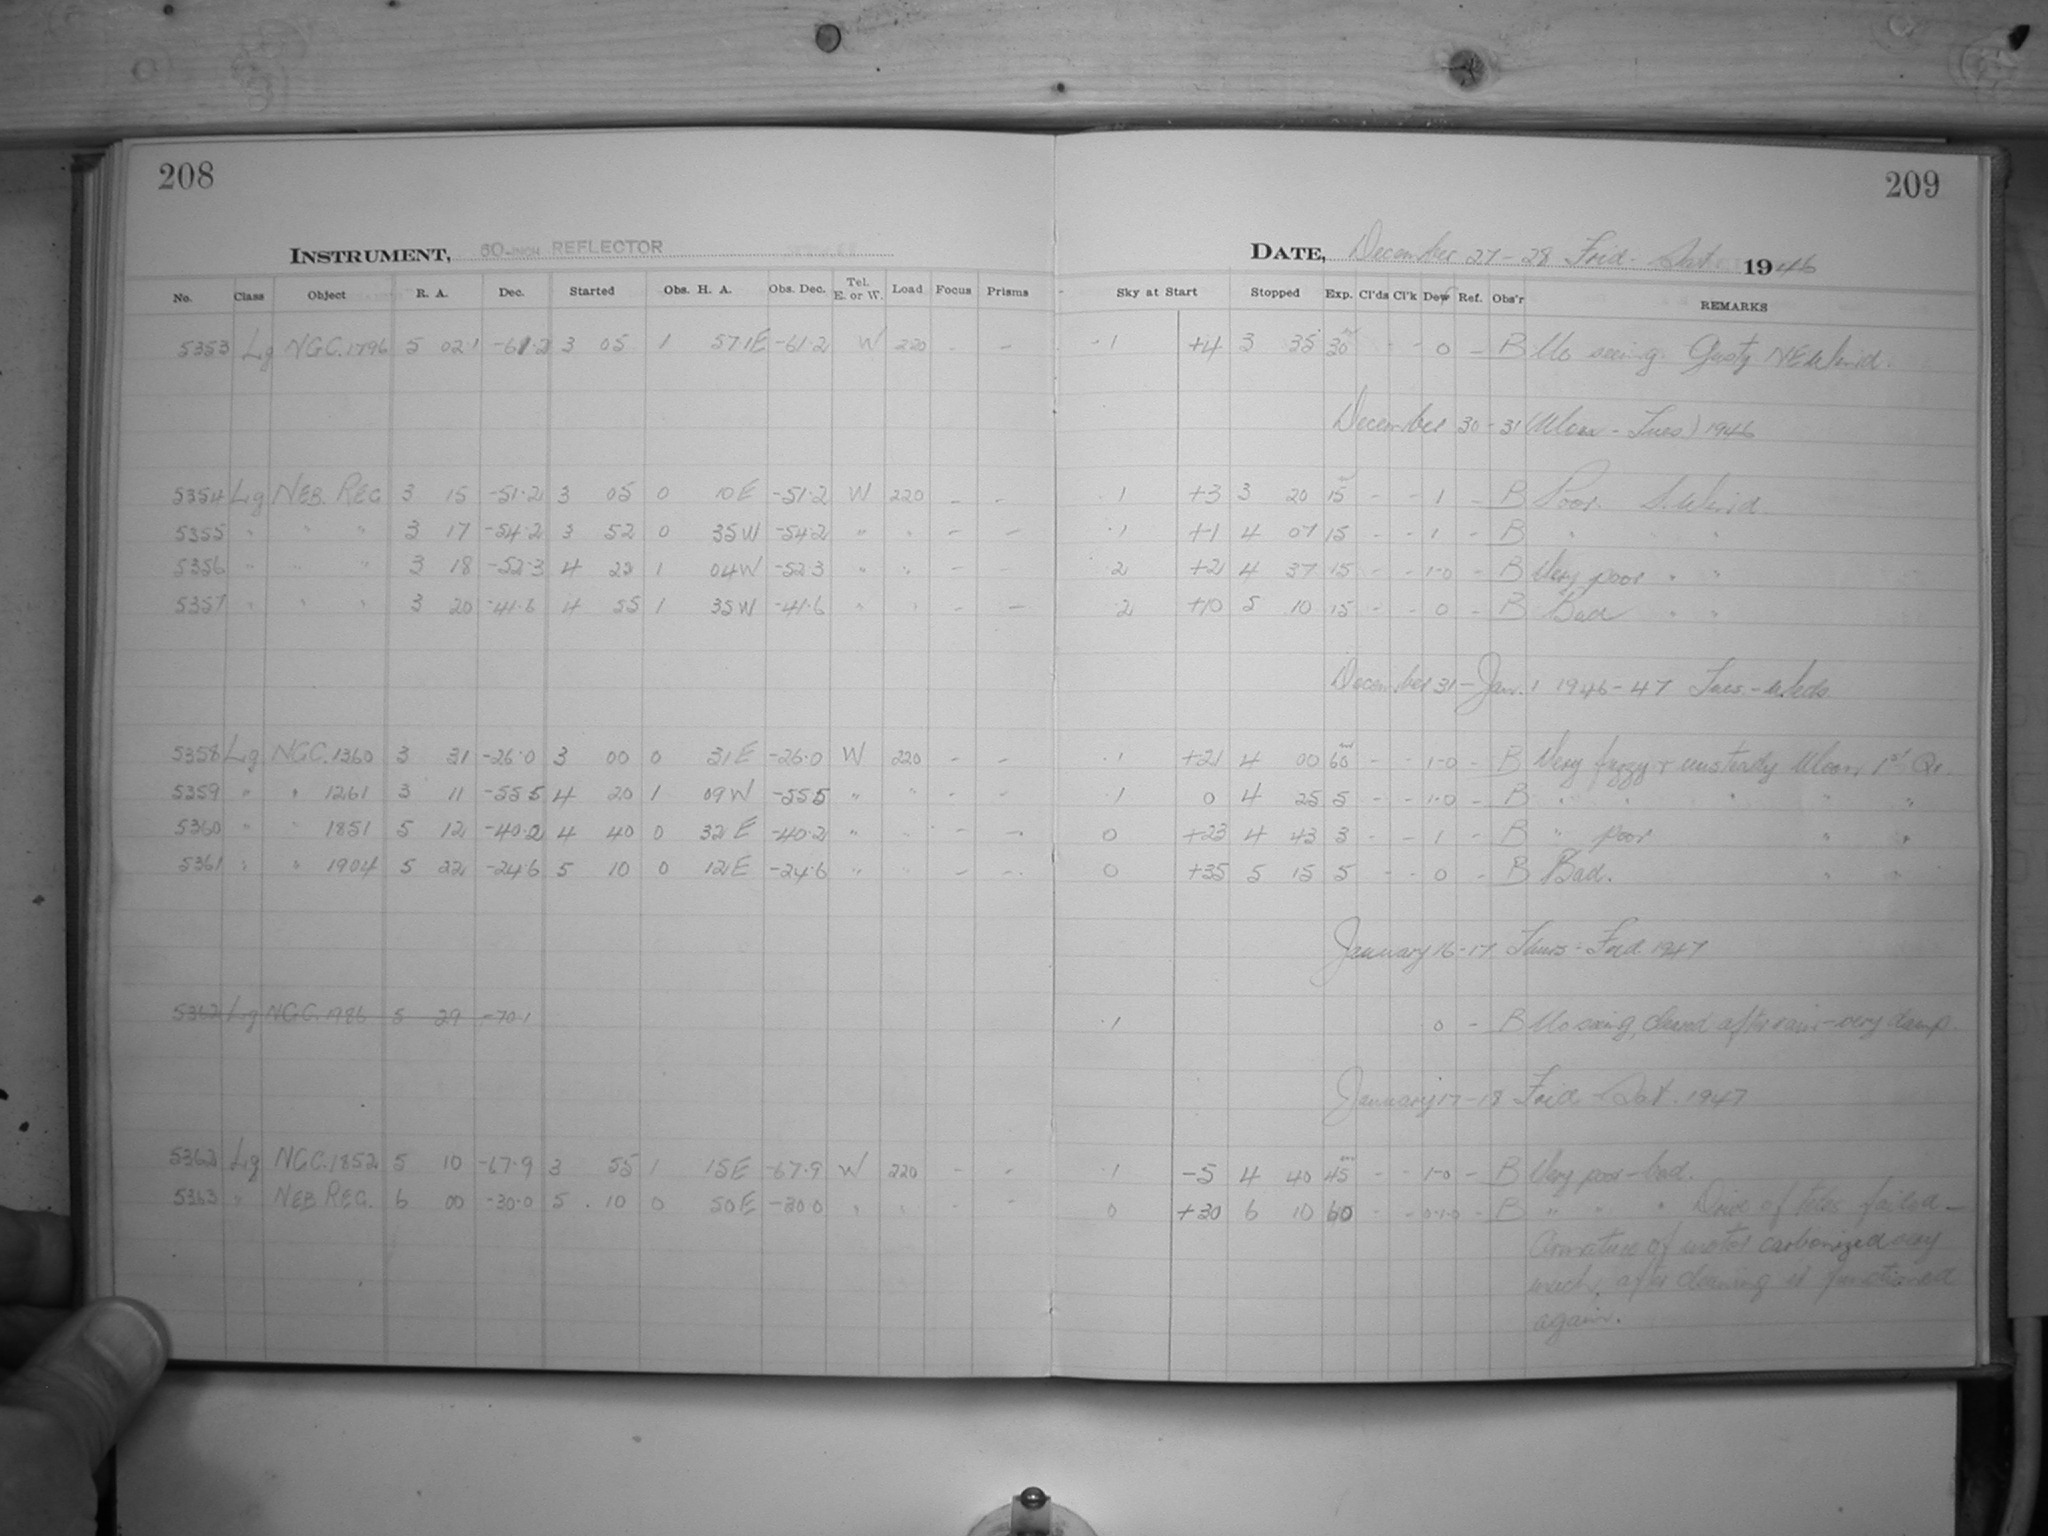 208
209
INSTRUMENT, 60-INCH REFLECTOR
DATE, December 27-28 Frid. - Sat 1946
No. Class Object R. A. Dec. Started Obs. H. A. Obs. Dec. Tel. E. or W. Load Focus Prisms Sky at Start Stopped Exp. Cl'ds Cl'k Dew Ref. Obs'r REMARKS
5353 Lg NGC.1796 5 02.1 -61.2 3 05 1 57E -61.2 W 220 - - .1 +4 3 35 30 - - 0 - B No seeing. Gusty NE Wind.
December 30-31 (Mon - Tues) 1946
5354 Lg NEB. REG 3 15 -51.2 3 05 0 10E -51.2 W 220 - - .1 +3 3 20 15 - - 1 - B Poor. S. Wind.
5355 " " " 3 17 -54.2 3 52 0 35W -54.2 " " - - .1 +1 4 07 15 - - 1 - B " " "
5356 " " " 3 18 -52.3 4 22 1 04W -52.3 " " - - .2 +2 4 37 15 - - 1-0 - B Very poor " "
5357 " " " 3 20 -41.6 4 55 1 35W -41.6 " " - - .2 +10 5 10 15 - - 0 - B Bad " "
December 31 - Jan. 1 1946-47 Tues. - Weds
5358 Lg NGC.1360 3 31 -26.0 3 00 0 31E -26.0 W 220 - - .1 +21 4 00 60 - - 1-0 - B Very fuzzy + unsteady Moon 1st Qr.
5359 " " 1261 3 11 -55.5 4 20 1 09W -55.5 " " - - .1 0 4 25 5 - - 1-0 - B " " " " "
5360 " " 1851 5 12 -40.2 4 40 0 32E -40.2 " " - - 0 +23 4 43 3 - - 1 - B " poor " "
5361 " " 1904 5 22 -24.6 5 10 0 12E -24.6 " " - - 0 +35 5 15 5 - - 0 - B Bad. " "
January 16-17 Thurs - Frid. 1947
5362 Lg NGC.1986 5 29 -70.1 .1 0 - B No seeing, cleared after rain - very damp.
January 17-18 Frid - Sat. 1947
5362 Lg NGC.1852 5 10 -67.9 3 55 1 15E -67.9 W 220 - - .1 -5 4 40 45 - - 1-0 - B Very poor - bad.
5363 " NEB REG. 6 00 -30.0 5 10 0 50E -30.0 " " - - 0 +30 6 10 60 - - 0-1-0 - B " " " Drive of teles. failed -
Armature of motor carbonized very
much, after cleaning it functioned
again.